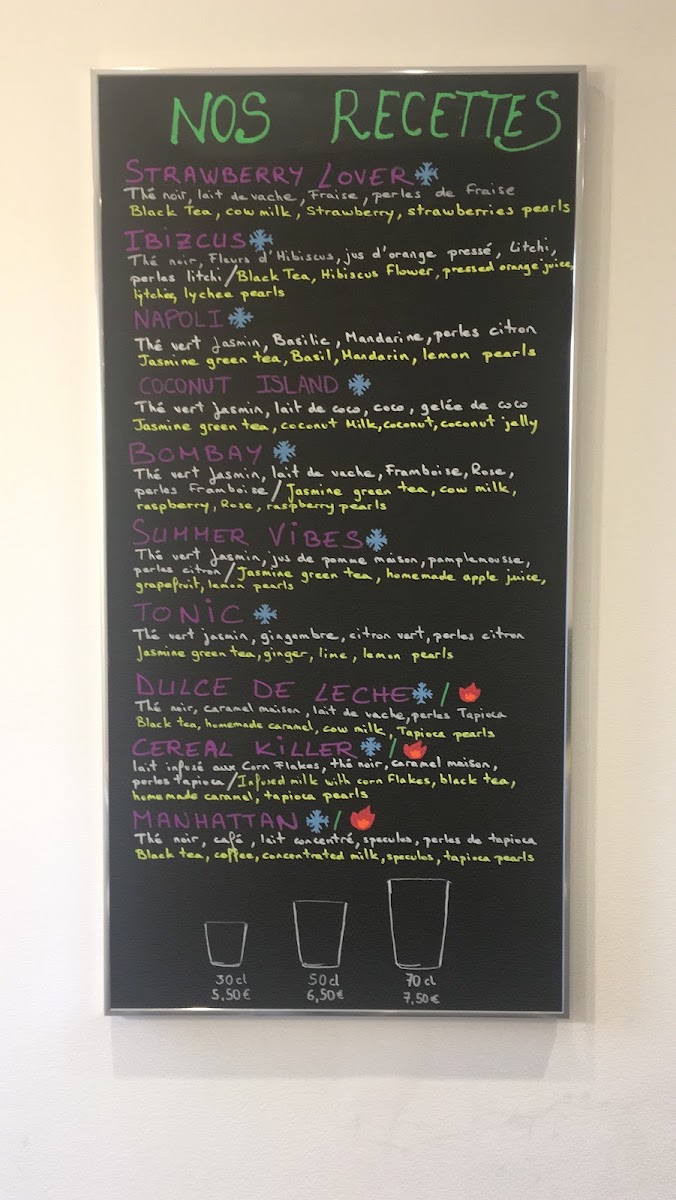 NOS RECETTES
STRAWBERRY LOVER
Thé noir, lait de vache, Fraise, perles de fraise
Black Tea, cow milk, Strawberry, strawberries pearls
IBIZCUS
Thé noir, Fleurs d'Hibiscus, jus d'orange pressé, Litchi,
perles litchi / Black Tea, Hibiscus Flower, pressed orange juice,
lychee pearls
NAPOLI
Thé vert Jasmin, Basilic, Mandarine, perles citron
Jasmine green tea, Basil, Mandarin, lemon pearls
COCONUT ISLAND
Thé vert jasmin, lait de coco, coco, gelée de coco
Jasmine green tea, coconut Milk, coconut, coconut jelly
BOMBAY
Thé vert Jasmin, lait de vache, Framboise, Rose,
perles Framboise / Jasmine green tea, cow milk,
raspberry, Rose, raspberry pearls
SUMMER VIBES
Thé vert Jasmin, jus de pomme maison, pamplemousse,
perles citron / Jasmine green tea, homemade apple juice,
grapefruit, lemon pearls
TONIC
Thé vert jasmin, gingembre, citron vert, perles citron
Jasmine green tea, ginger, lime, lemon pearls
DULCE DE LECHE /
Thé noir, caramel maison, lait de vache, perles Tapioca
Black tea, homemade caramel, cow milk, Tapioca pearls
CEREAL KILLER /
lait infusé aux Corn Flakes, thé noir, caramel maison,
perles tapioca / Infused milk with corn Flakes, black tea,
homemade caramel, tapioca pearls
MANHATTAN /
Thé noir, café, lait concentré, speculos, perles de tapioca
Black tea, coffee, concentrated milk, speculos, tapioca pearls
30cl 50cl 70cl
5,50€ 6,50€ 7,50€